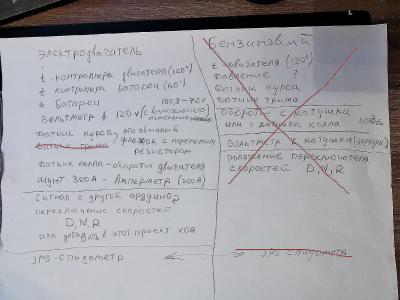 электродвигатель
t - контроллера двигателя (120°)
t контроллера батареи (60°)
t батареи 100,8 - 72 v
Вольтметр ф 120 v (с возможностью
Датчик курса это обычный
Датчик трима с переменным
резистором
Датчик холла - обороты двигателя
Шунт 300А - Амперметр (200А)
Сигнал с другой ардуино?
переключение скоростей
D, N, R
или добавить в этот проект код
JPS - спидометр
Бензиновый
t двигателя (120°)
Давление ?
Датчик курса
Датчик трима
Обороты с катушки
или с датчика холла
Вольтметр с катушки (зарядки)
положение переключателя
скоростей D, N, R
JPS спидометр